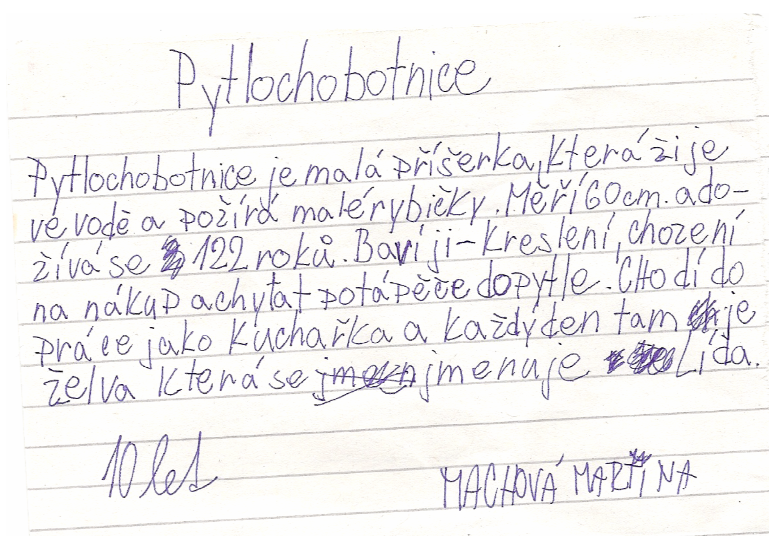 Pytlochobotnice
Pytlochobotnice je malá příšerka, která žije
ve vodě a požírá malé rybičky. Měří 60cm. a do-
žívá se 122 roků. Baví ji-kreslení, chození
na nákup a chytat potápěče do pytle. CHodí do
práce jako kuchařka a každý den tam je
želva která se jmenuje Lída.
10 let
MACHOVÁ MARTINA